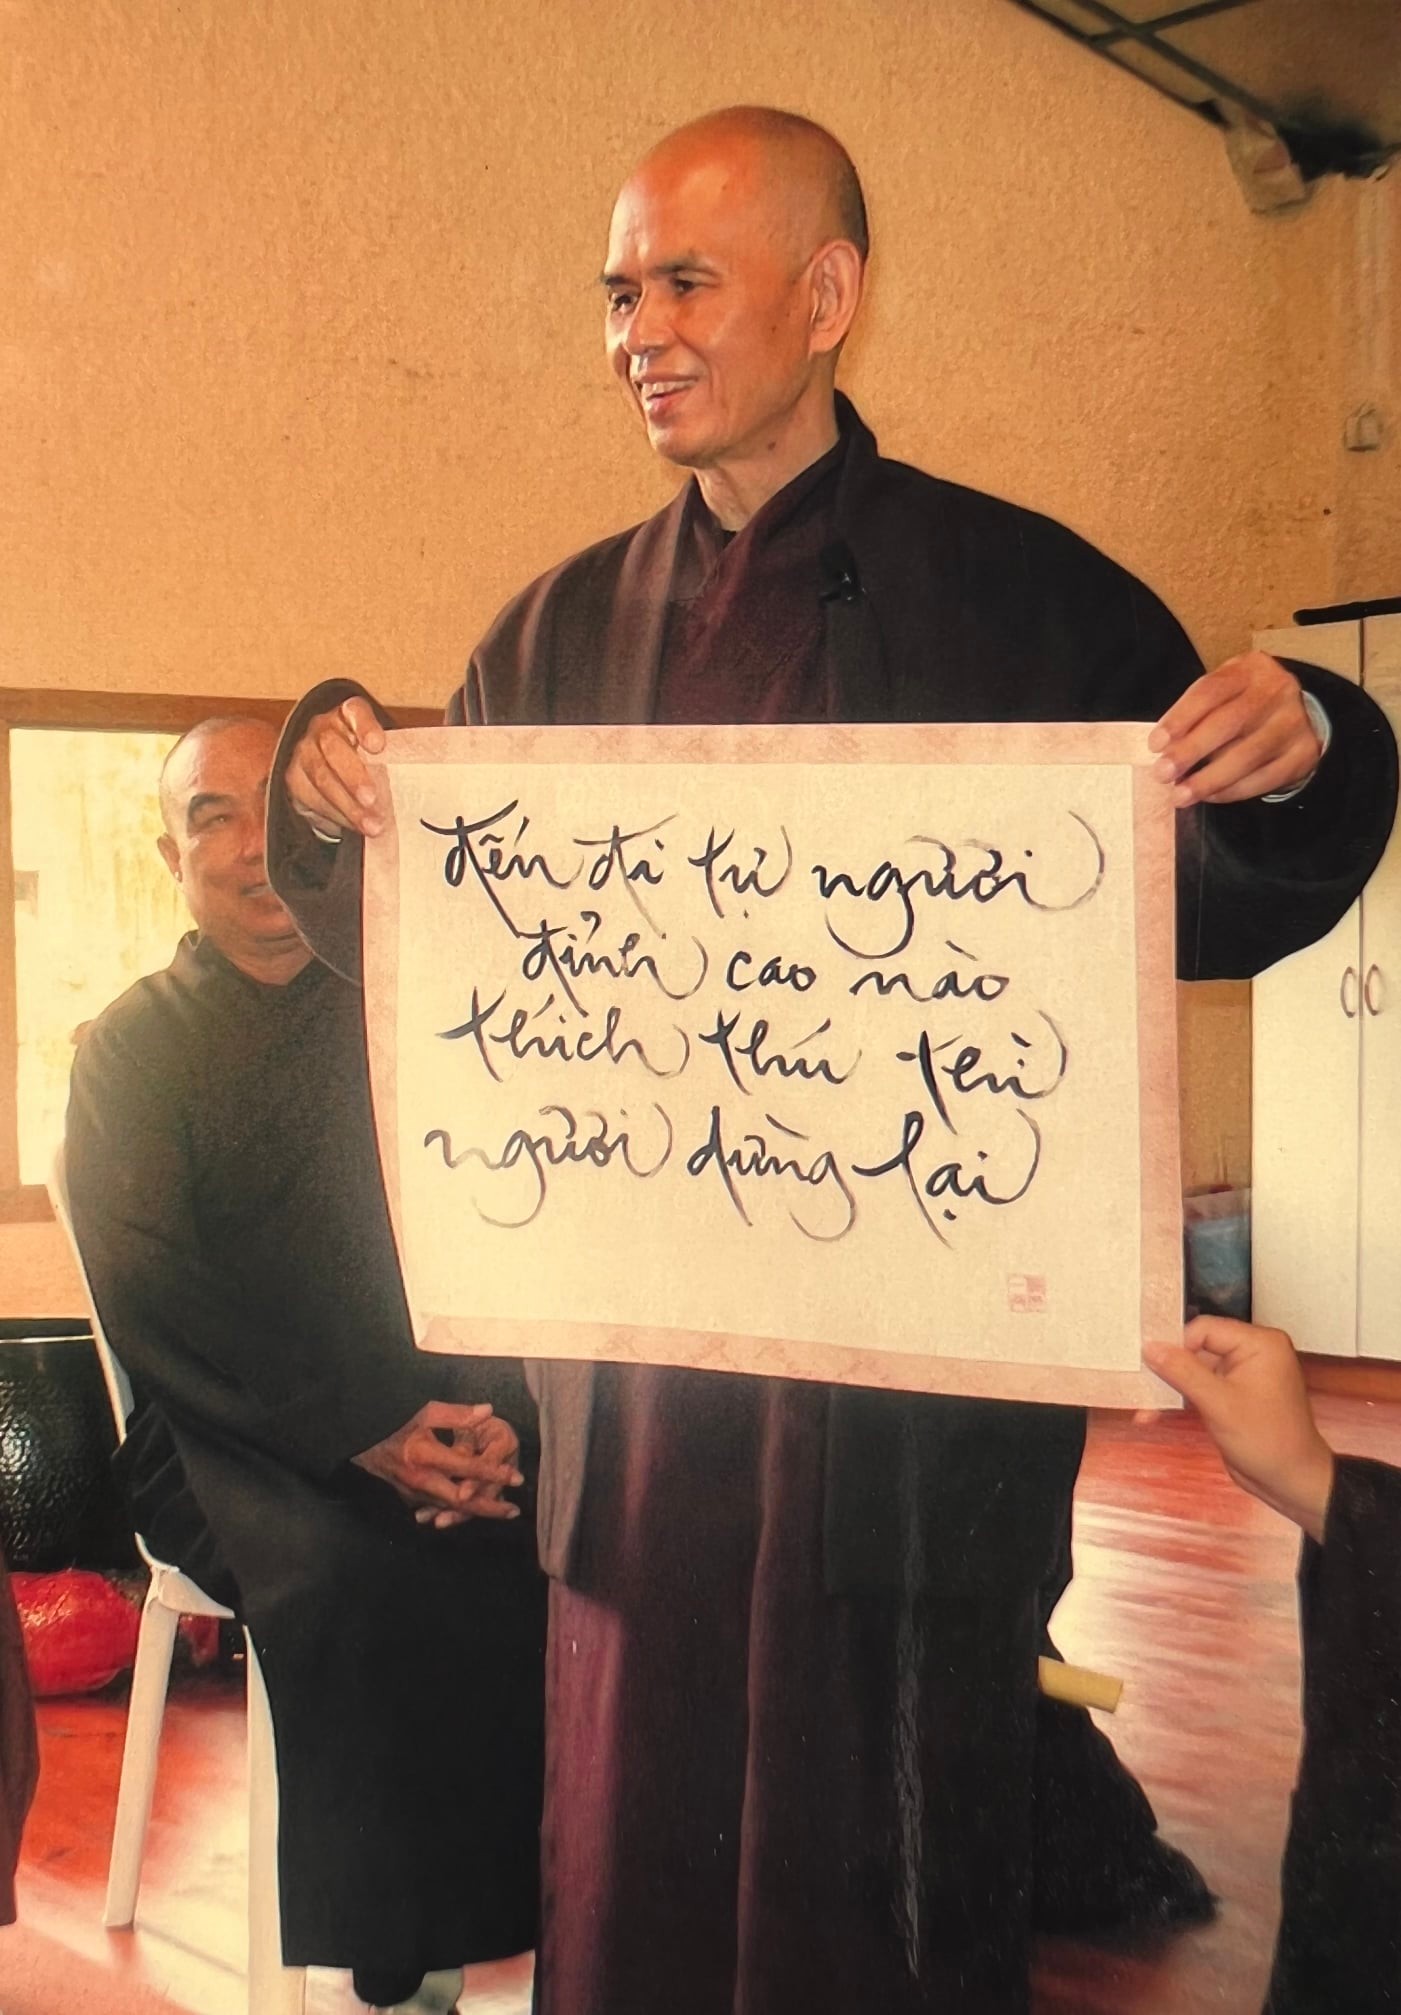 đến đi tự người
đỉnh cao nào
thích thú thì
người dừng lại